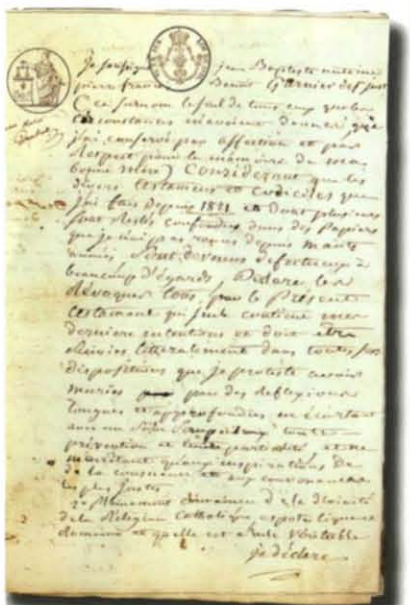 Je soussigné Jean Baptiste antoine
pierre françois Benoit Garnier
(ce surnom le seul de tous ceux que les
circonstances m'avoient donner que
j'ai conservé par affection et par
respect pour la mémoire de ma
bonne mère) Considérant que les
divers testamens et codiciles que
j'ai faits depuis 1811 et dont plusieurs
sont restés confondus dans des Papiers
que je n'ai pas revus depuis maintes
années sont devenus defectueux à
beaucoup d'égards, Déclare les
révoquer tous, pour le Présent
testament qui seul contient mes
dernières intentions et doit être
littéralement dans toutes ses
dispositions que je proteste avoir
muries par des reflexions
longues et approfondies en écartant
avec un soin toute
prévention et toute partialité et ne
qu'aux inspirations de
de la conscience et aux convenances
les plus justes
de la divinité
de la Religion Catholique apostolique et
Romaine et qu'elle est seule véritable
je déclare